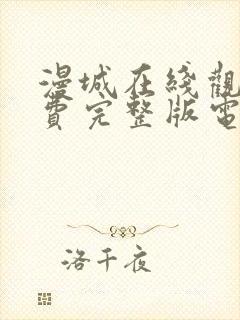 漫城在綫觀
費完整版電
洛千夜